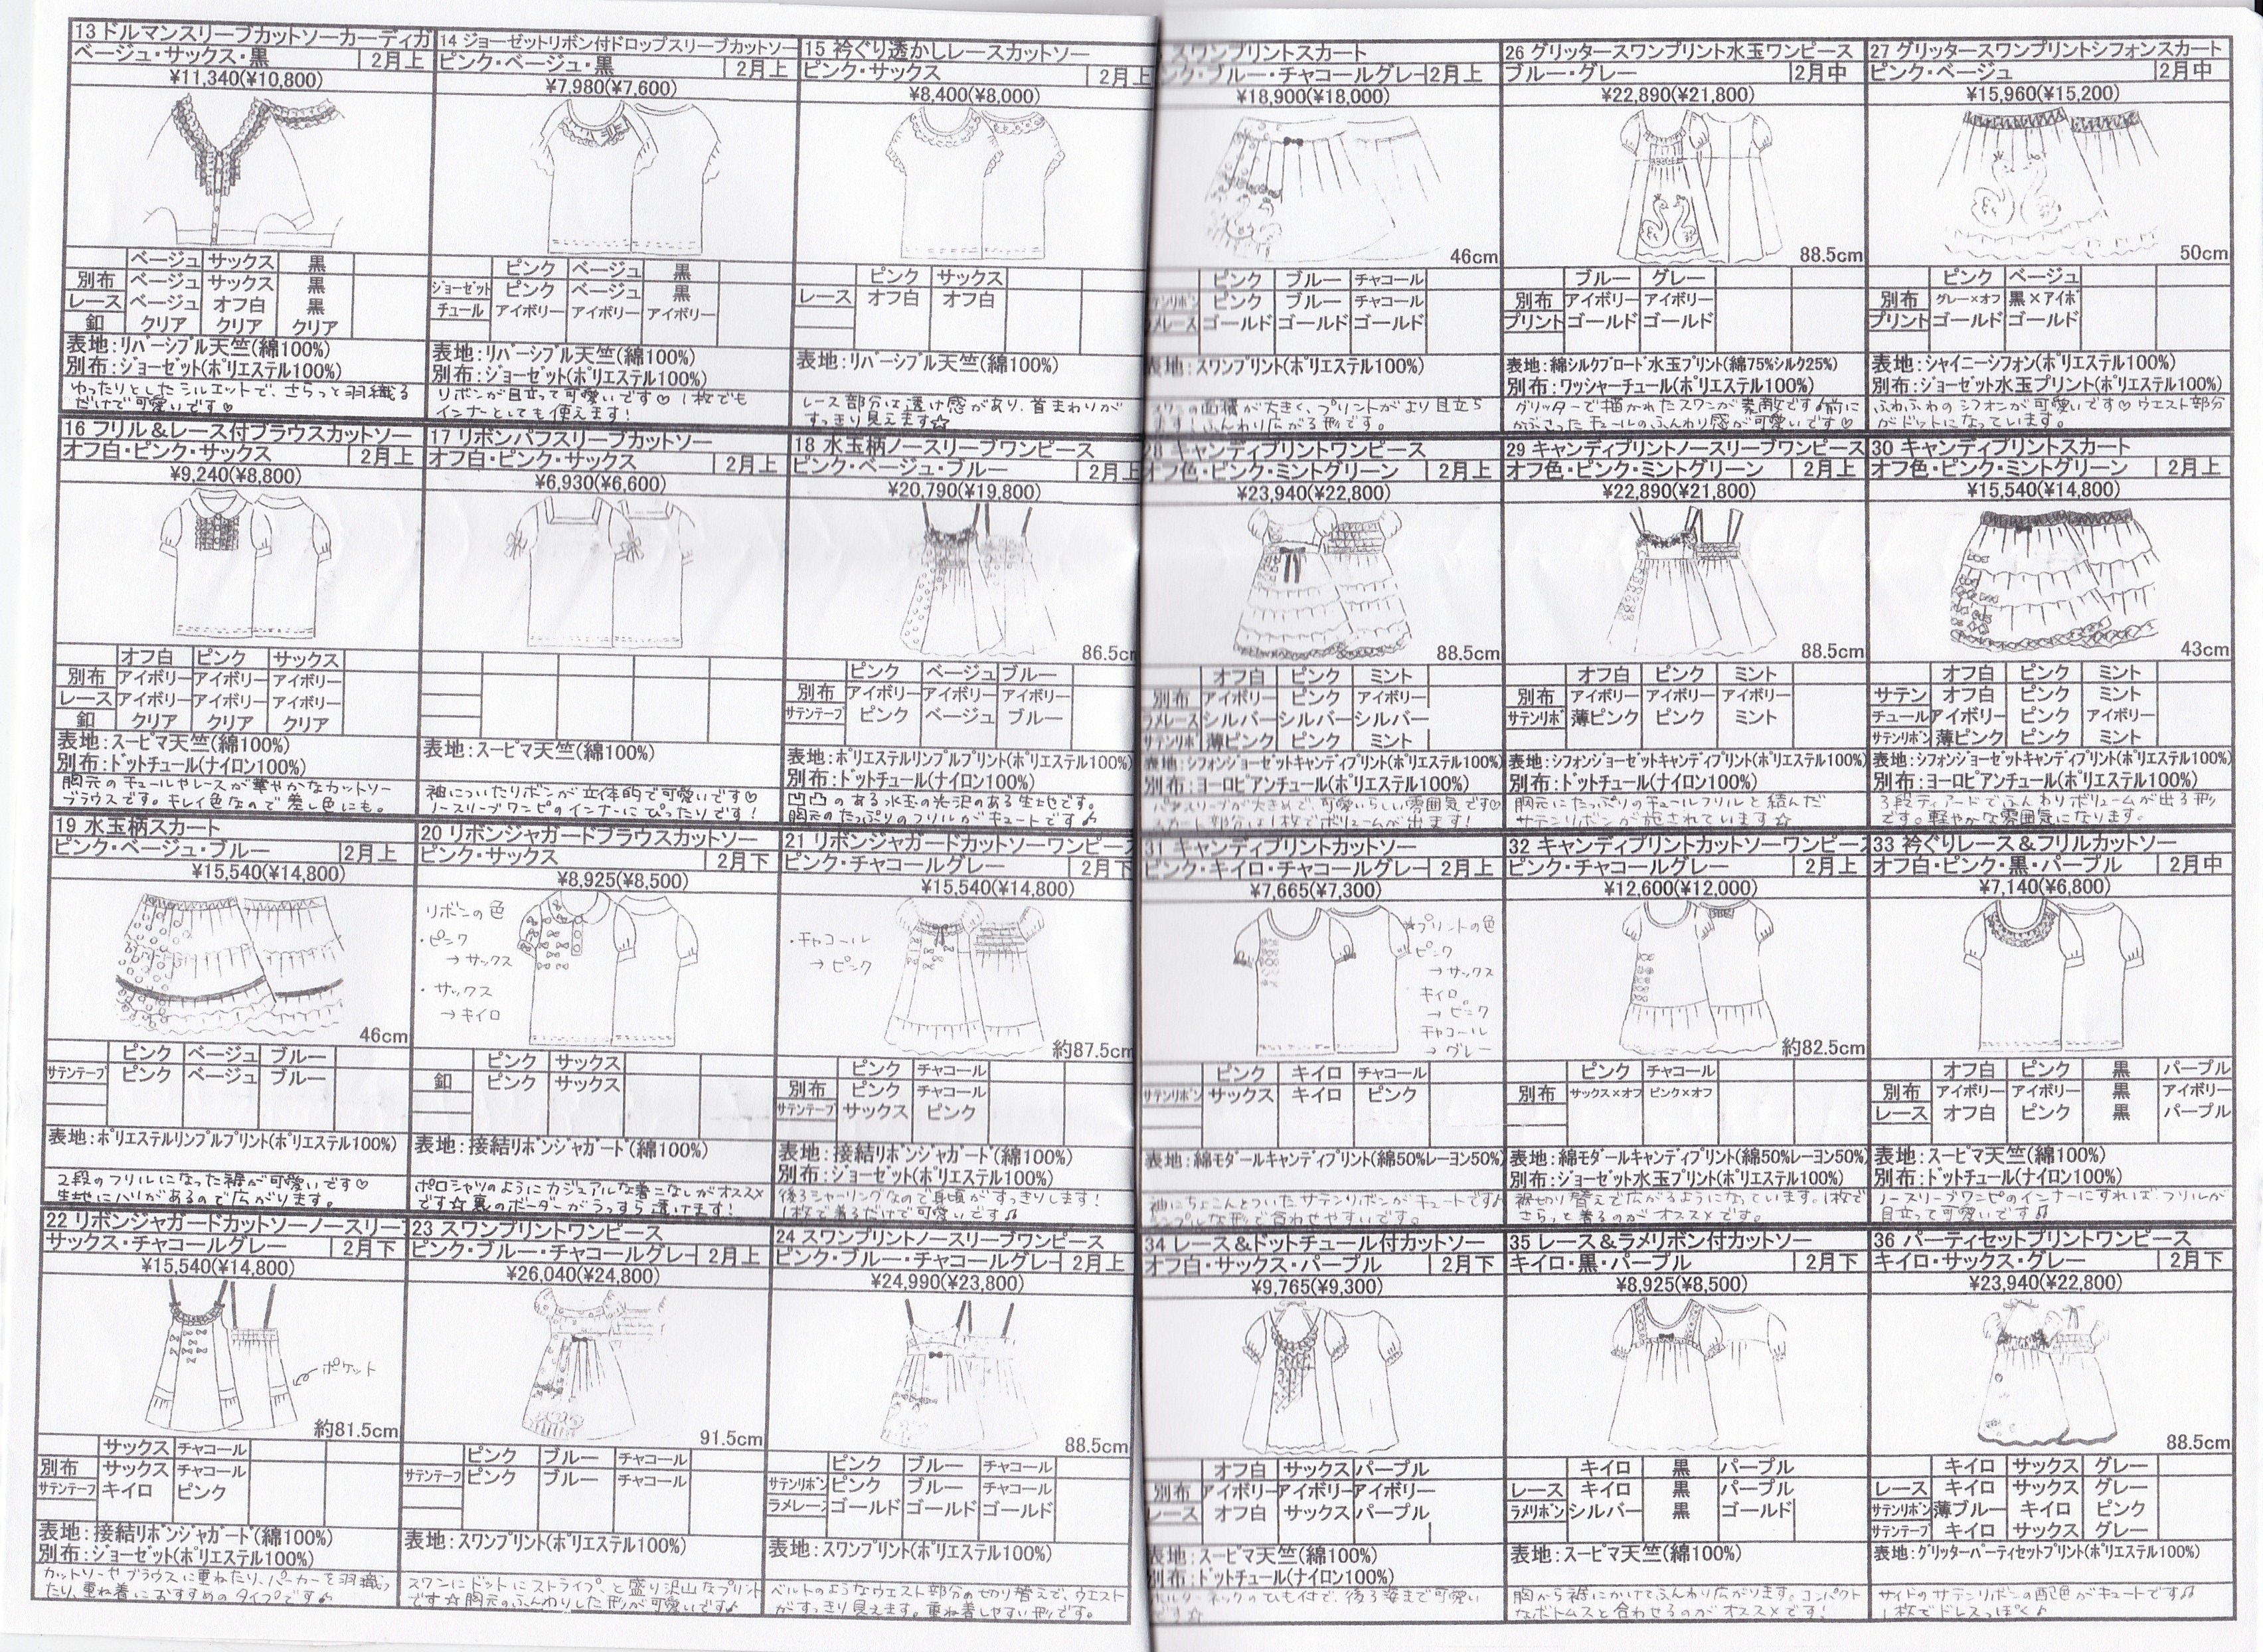 13 ドルマンスリーブカットソーカーディガ
ベージュ・サックス・黒 2月上
¥11,340(¥10,800)
ベージュ サックス 黒
別布 ベージュ サックス 黒
レース ベージュ オフ白 黒
釦 クリア クリア クリア
表地:リバーシブル天竺(綿100%)
別布:ジョーゼット(ポリエステル100%)
ゆったりとしたシルエットで、さらっと羽織る
だけで可愛いです♡
14 ジョーゼットリボン付ドロップスリーブカットソー
ピンク・ベージュ・黒 2月上
¥7,980(¥7,600)
ピンク ベージュ 黒
ジョーゼット ピンク ベージュ 黒
チュール アイボリー アイボリー アイボリー
表地:リバーシブル天竺(綿100%)
別布:ジョーゼット(ポリエステル100%)
リボンが目立って可愛いです♡ 1枚でも
インナーとしても使えます!
15 衿ぐり透かしレースカットソー
ピンク・サックス 2月上
¥8,400(¥8,000)
ピンク サックス
レース オフ白 オフ白
表地:リバーシブル天竺(綿100%)
レース部分は透け感があり、首まわりが
すっきり見えます☆
16 フリル&レース付ブラウスカットソー
オフ白・ピンク・サックス 2月上
¥9,240(¥8,800)
オフ白 ピンク サックス
別布 アイボリー アイボリー アイボリー
レース アイボリー アイボリー アイボリー
釦 クリア クリア クリア
表地:スーピマ天竺(綿100%)
別布:ドットチュール(ナイロン100%)
胸元のチュールやレースが華やかなカットソー
ブラウスです。キレイ色なので差し色にも。
17 リボンパフスリーブカットソー
オフ白・ピンク・サックス 2月上
¥6,930(¥6,600)
表地:スーピマ天竺(綿100%)
袖についたリボンが立体的で可愛いです♡
ノースリーブワンピのインナーにぴったりです!
18 水玉柄ノースリーブワンピース
ピンク・ベージュ・ブルー 2月上
¥20,790(¥19,800)
86.5cm
ピンク ベージュ ブルー
別布 アイボリー アイボリー アイボリー
サテンテープ ピンク ベージュ ブルー
表地:ポリエステルリンプルプリント(ポリエステル100%)
別布:ドットチュール(ナイロン100%)
凹凸のある水玉の光沢のある生地です。
胸元のたっぷりのフリルがキュートです♪
19 水玉柄スカート
ピンク・ベージュ・ブルー 2月上
¥15,540(¥14,800)
46cm
ピンク ベージュ ブルー
サテンテープ ピンク ベージュ ブルー
表地:ポリエステルリンプルプリント(ポリエステル100%)
2段のフリルになった裾が可愛いです♡
生地にハリがあるので広がります。
20 リボンジャガードブラウスカットソー
ピンク・サックス 2月下
¥8,925(¥8,500)
リボンの色
・ピンク
→サックス
・サックス
→キイロ
ピンク サックス
釦 ピンク サックス
表地:接結リボンジャガード(綿100%)
ポロシャツのようにカジュアルな着こなしがオススメ
です☆裏のボーダーがうっすら透けます!
21 リボンジャガードカットソーワンピース
ピンク・チャコールグレー 2月下
¥15,540(¥14,800)
・チャコール
→ピンク
約87.5cm
ピンク チャコール
別布 ピンク チャコール
サテンテープ サックス ピンク
表地:接結リボンジャガード(綿100%)
別布:ジョーゼット(ポリエステル100%)
後ろシャーリングなので身頃がすっきりします!
1枚で着るだけで可愛いです♫
22 リボンジャガードカットソーノースリー
サックス・チャコールグレー 2月下
¥15,540(¥14,800)
ポケット
約81.5cm
サックス チャコール
別布 サックス チャコール
サテンテープ キイロ ピンク
表地:接結リボンジャガード(綿100%)
別布:ジョーゼット(ポリエステル100%)
カットソーやブラウスに重ねたり、パーカーを羽織っ
たり、重ね着におすすめのタイプです♪
23 スワンプリントワンピース
ピンク・ブルー・チャコールグレー 2月上
¥26,040(¥24,800)
91.5cm
ピンク ブルー チャコール
サテンテープ ピンク ブルー チャコール
表地:スワンプリント(ポリエステル100%)
スワンにドットにストライプ、と盛り沢山なプリント
です☆胸元のふんわりした形が可愛いです♪
24 スワンプリントノースリーブワンピース
ピンク・ブルー・チャコールグレー 2月上
¥24,990(¥23,800)
88.5cm
ピンク ブルー チャコール
サテンリボン ピンク ブルー チャコール
ラメレース ゴールド ゴールド ゴールド
表地:スワンプリント(ポリエステル100%)
ベルトのようなウエスト部分の切り替えで、ウエスト
がすっきり見えます。重ね着しやすい形です。
スワンプリントスカート
ピンク・ブルー・チャコールグレー 2月上
¥18,900(¥18,000)
46cm
ピンク ブルー チャコール
サテンリボン ピンク ブルー チャコール
ラメレース ゴールド ゴールド ゴールド
表地:スワンプリント(ポリエステル100%)
スワンの面積が大きく、プリントがより目立ち
ます!ふんわり広がる形です。
26 グリッタースワンプリント水玉ワンピース
ブルー・グレー 2月中
¥22,890(¥21,800)
88.5cm
ブルー グレー
別布 アイボリー アイボリー
プリント ゴールド ゴールド
表地:綿シルクブロード水玉プリント(綿75%シルク25%)
別布:ワッシャーチュール(ポリエステル100%)
グリッターで描かれたスワンが素敵です♪前に
かぶさったチュールのふんわり感が可愛いです♡
27 グリッタースワンプリントシフォンスカート
ピンク・ベージュ 2月中
¥15,960(¥15,200)
50cm
ピンク ベージュ
別布 グレー×オフ 黒×アイボ
プリント ゴールド ゴールド
表地:シャイニーシフォン(ポリエステル100%)
別布:ジョーゼット水玉プリント(ポリエステル100%)
ふわふわのシフォンが可愛いです♡ウエスト部分
がドットになっています。
28 キャンディプリントワンピース
オフ色・ピンク・ミントグリーン 2月上
¥23,940(¥22,800)
88.5cm
オフ白 ピンク ミント
別布 アイボリー ピンク アイボリー
ラメレース シルバー シルバー シルバー
サテンリボ 薄ピンク ピンク ミント
表地:シフォンジョーゼットキャンディプリント(ポリエステル100%)
別布:ヨーロピアンチュール(ポリエステル100%)
パフスリーブが大きめで、可愛いらしい雰囲気です♡
スカート部分は1枚でボリュームが出ます!
29 キャンディプリントノースリーブワンピース
オフ色・ピンク・ミントグリーン 2月上
¥22,890(¥21,800)
88.5cm
オフ白 ピンク ミント
別布 アイボリー アイボリー アイボリー
サテンリボ 薄ピンク ピンク ミント
表地:シフォンジョーゼットキャンディプリント(ポリエステル100%)
別布:ドットチュール(ナイロン100%)
胸元にたっぷりのチュールフリルと結んだ
サテンリボンが施されています☆
30 キャンディプリントスカート
オフ色・ピンク・ミントグリーン 2月上
¥15,540(¥14,800)
43cm
オフ白 ピンク ミント
サテン オフ白 ピンク ミント
チュール アイボリー ピンク アイボリー
サテンリボン 薄ピンク ピンク ミント
表地:シフォンジョーゼットキャンディプリント(ポリエステル100%)
別布:ヨーロピアンチュール(ポリエステル100%)
3段ティアードでふんわりボリュームが出る形
です。軽やかな雰囲気になります。
31 キャンディプリントカットソー
ピンク・キイロ・チャコールグレー 2月上
¥7,665(¥7,300)
☆プリントの色
ピンク
→サックス
キイロ
→ピンク
チャコール
→グレー
ピンク キイロ チャコール
サテンリボン サックス キイロ ピンク
表地:綿モダールキャンディプリント(綿50%レーヨン50%)
袖にちょこんとついたサテンリボンがキュートです♪
シンプルな形で合わせやすいです。
32 キャンディプリントカットソーワンピース
ピンク・チャコールグレー 2月上
¥12,600(¥12,000)
約82.5cm
ピンク チャコール
別布 サックス×オフ ピンク×オフ
表地:綿モダールキャンディプリント(綿50%レーヨン50%)
別布:ジョーゼット水玉プリント(ポリエステル100%)
裾切り替えで広がるようになっています。1枚で
さらっと着るのがオススメです。
33 衿ぐりレース&フリルカットソー
オフ白・ピンク・黒・パープル 2月中
¥7,140(¥6,800)
オフ白 ピンク 黒 パープル
別布 アイボリー アイボリー 黒 アイボリー
レース オフ白 ピンク 黒 パープル
表地:スーピマ天竺(綿100%)
別布:ドットチュール(ナイロン100%)
ノースリーブワンピのインナーにすれば、フリルが
目立って可愛いです♫
34 レース&ドットチュール付カットソー
オフ白・サックス・パープル 2月下
¥9,765(¥9,300)
オフ白 サックス パープル
別布 アイボリー アイボリー アイボリー
レース オフ白 サックス パープル
表地:スーピマ天竺(綿100%)
別布:ドットチュール(ナイロン100%)
ホルターネックのひも付で、後ろ姿まで可愛い
です☆
35 レース&ラメリボン付カットソー
キイロ・黒・パープル 2月下
¥8,925(¥8,500)
キイロ 黒 パープル
レース キイロ 黒 パープル
ラメリボン シルバー 黒 ゴールド
表地:スーピマ天竺(綿100%)
胸から裾にかけてふんわり広がります。コンパクト
なボトムスと合わせるのがオススメです!
36 パーティセットプリントワンピース
キイロ・サックス・グレー 2月下
¥23,940(¥22,800)
88.5cm
キイロ サックス グレー
レース キイロ サックス グレー
サテンリボン 薄ブルー キイロ ピンク
サテンテープ キイロ サックス グレー
表地:グリッターパーティセットプリント(ポリエステル100%)
サイドのサテンリボンの配色がキュートです♫
1枚でドレスっぽく♪